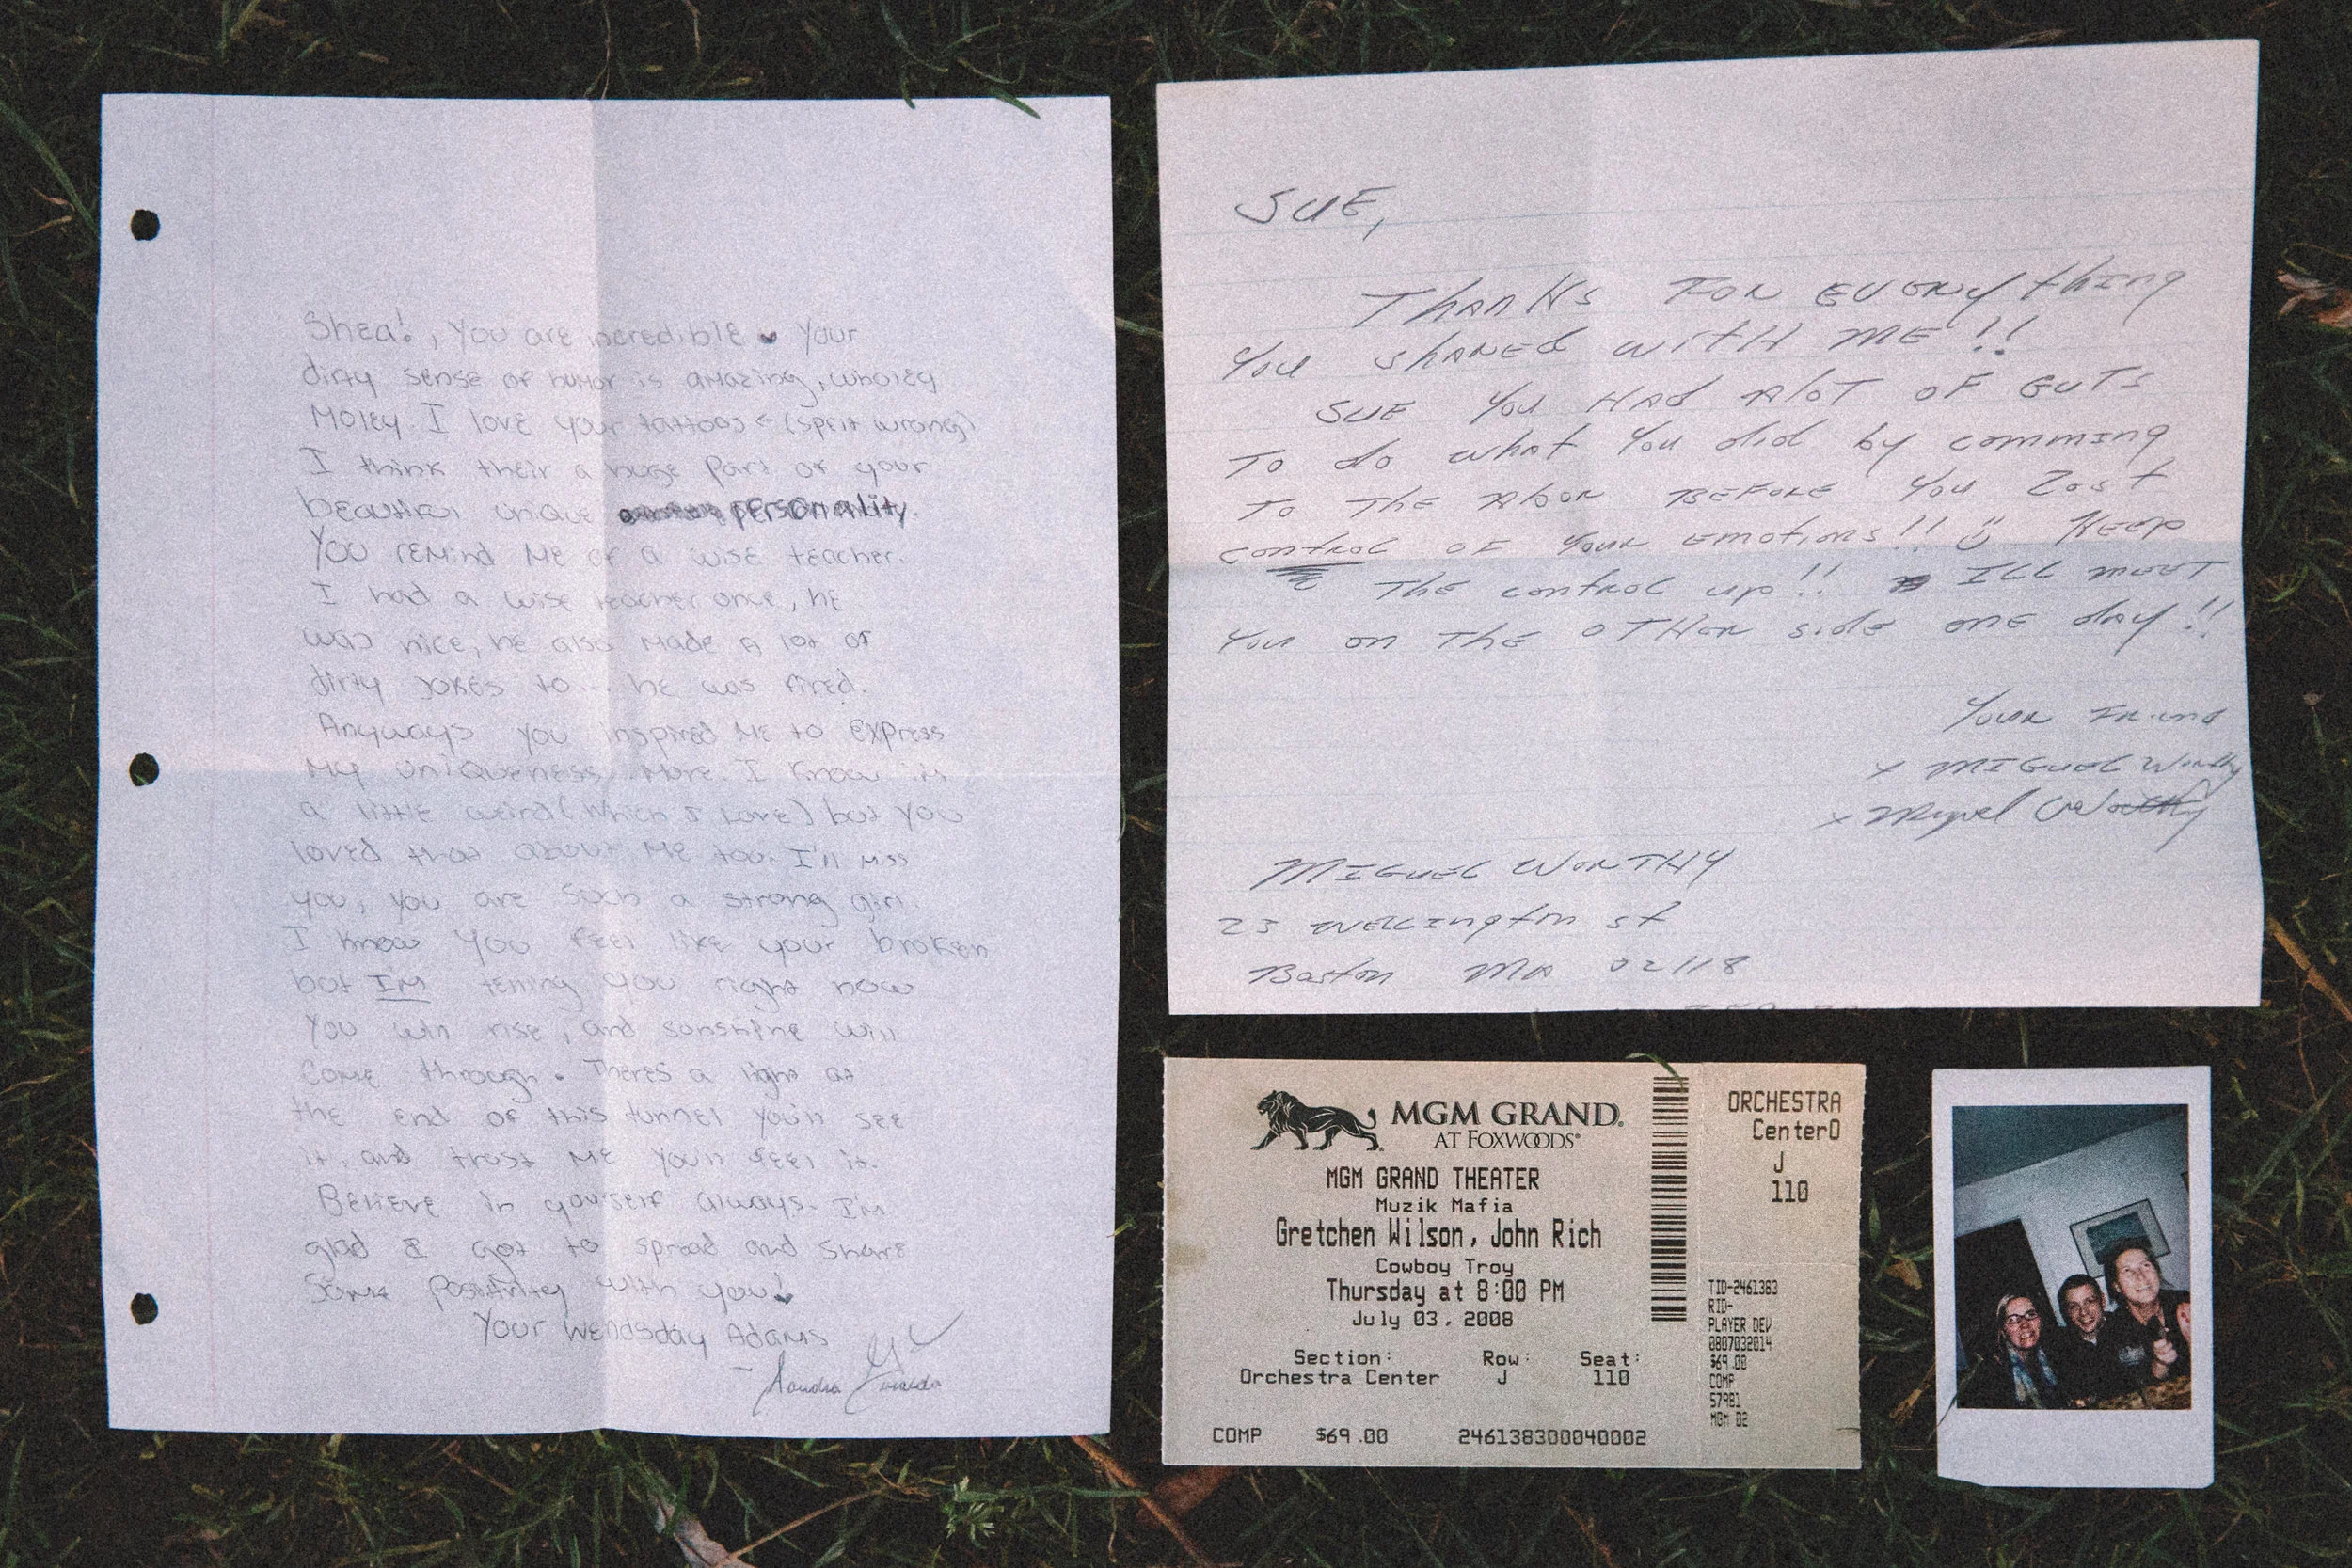 Shea!, You are incredible Your
dirty sense of humor is amazing, wholey
Moley. I love your tattoos < (splet wrong)
I think their a huge part of your
beautiful unique personality.
You remind me of a wise teacher.
I had a wise teacher once, he
was nice, he also made a lot of
dirty jokes to... he was fired.
Anyways you inspired me to express
my uniqueness More. I know its
a little weird (which I love) but you
loved that about me too. I'll miss
you, you are such a strong girl.
I know you feel like your broken
but I'm telling you right now
You will rise, and sunshine will
come through. Theres a light at
the end of this tunnel you'll see
it, and trust me you'll feel it.
Believe in yourself always. I'm
glad I got to spread and share
some positivity with you!
Your Wendsday Adams
SUE,
THANKS FOR EVERYthing
You SHARED WITH ME!!
SUE You HAD ALOT OF GUTS
TO do what You did by comming
TO THE BEFORE You Lost
control OF YOUR EMOTIONS!! KEEP
THE CONTROL up!! ILL MEET
You on THE OTHER side ONE day!!
YOUR FRIEND
x MIGUEL Worthy
x Miguel Worthy
MIGUEL WORTHY
23 WELLINGTON ST
Boston MA 02118
MGM GRAND.
AT FOXWOODS®
MGM GRAND THEATER
Muzik Mafia
Gretchen Wilson, John Rich
Cowboy Troy
Thursday at 8:00 PM
July 03, 2008
Section: Row: Seat:
Orchestra Center J 110
COMP $69.00 246138300040002
ORCHESTRA
CenterO
J
110
TID-2461383
RID-
PLAYER DEV
0807032014
$69.00
COMP
57981
MGM 02